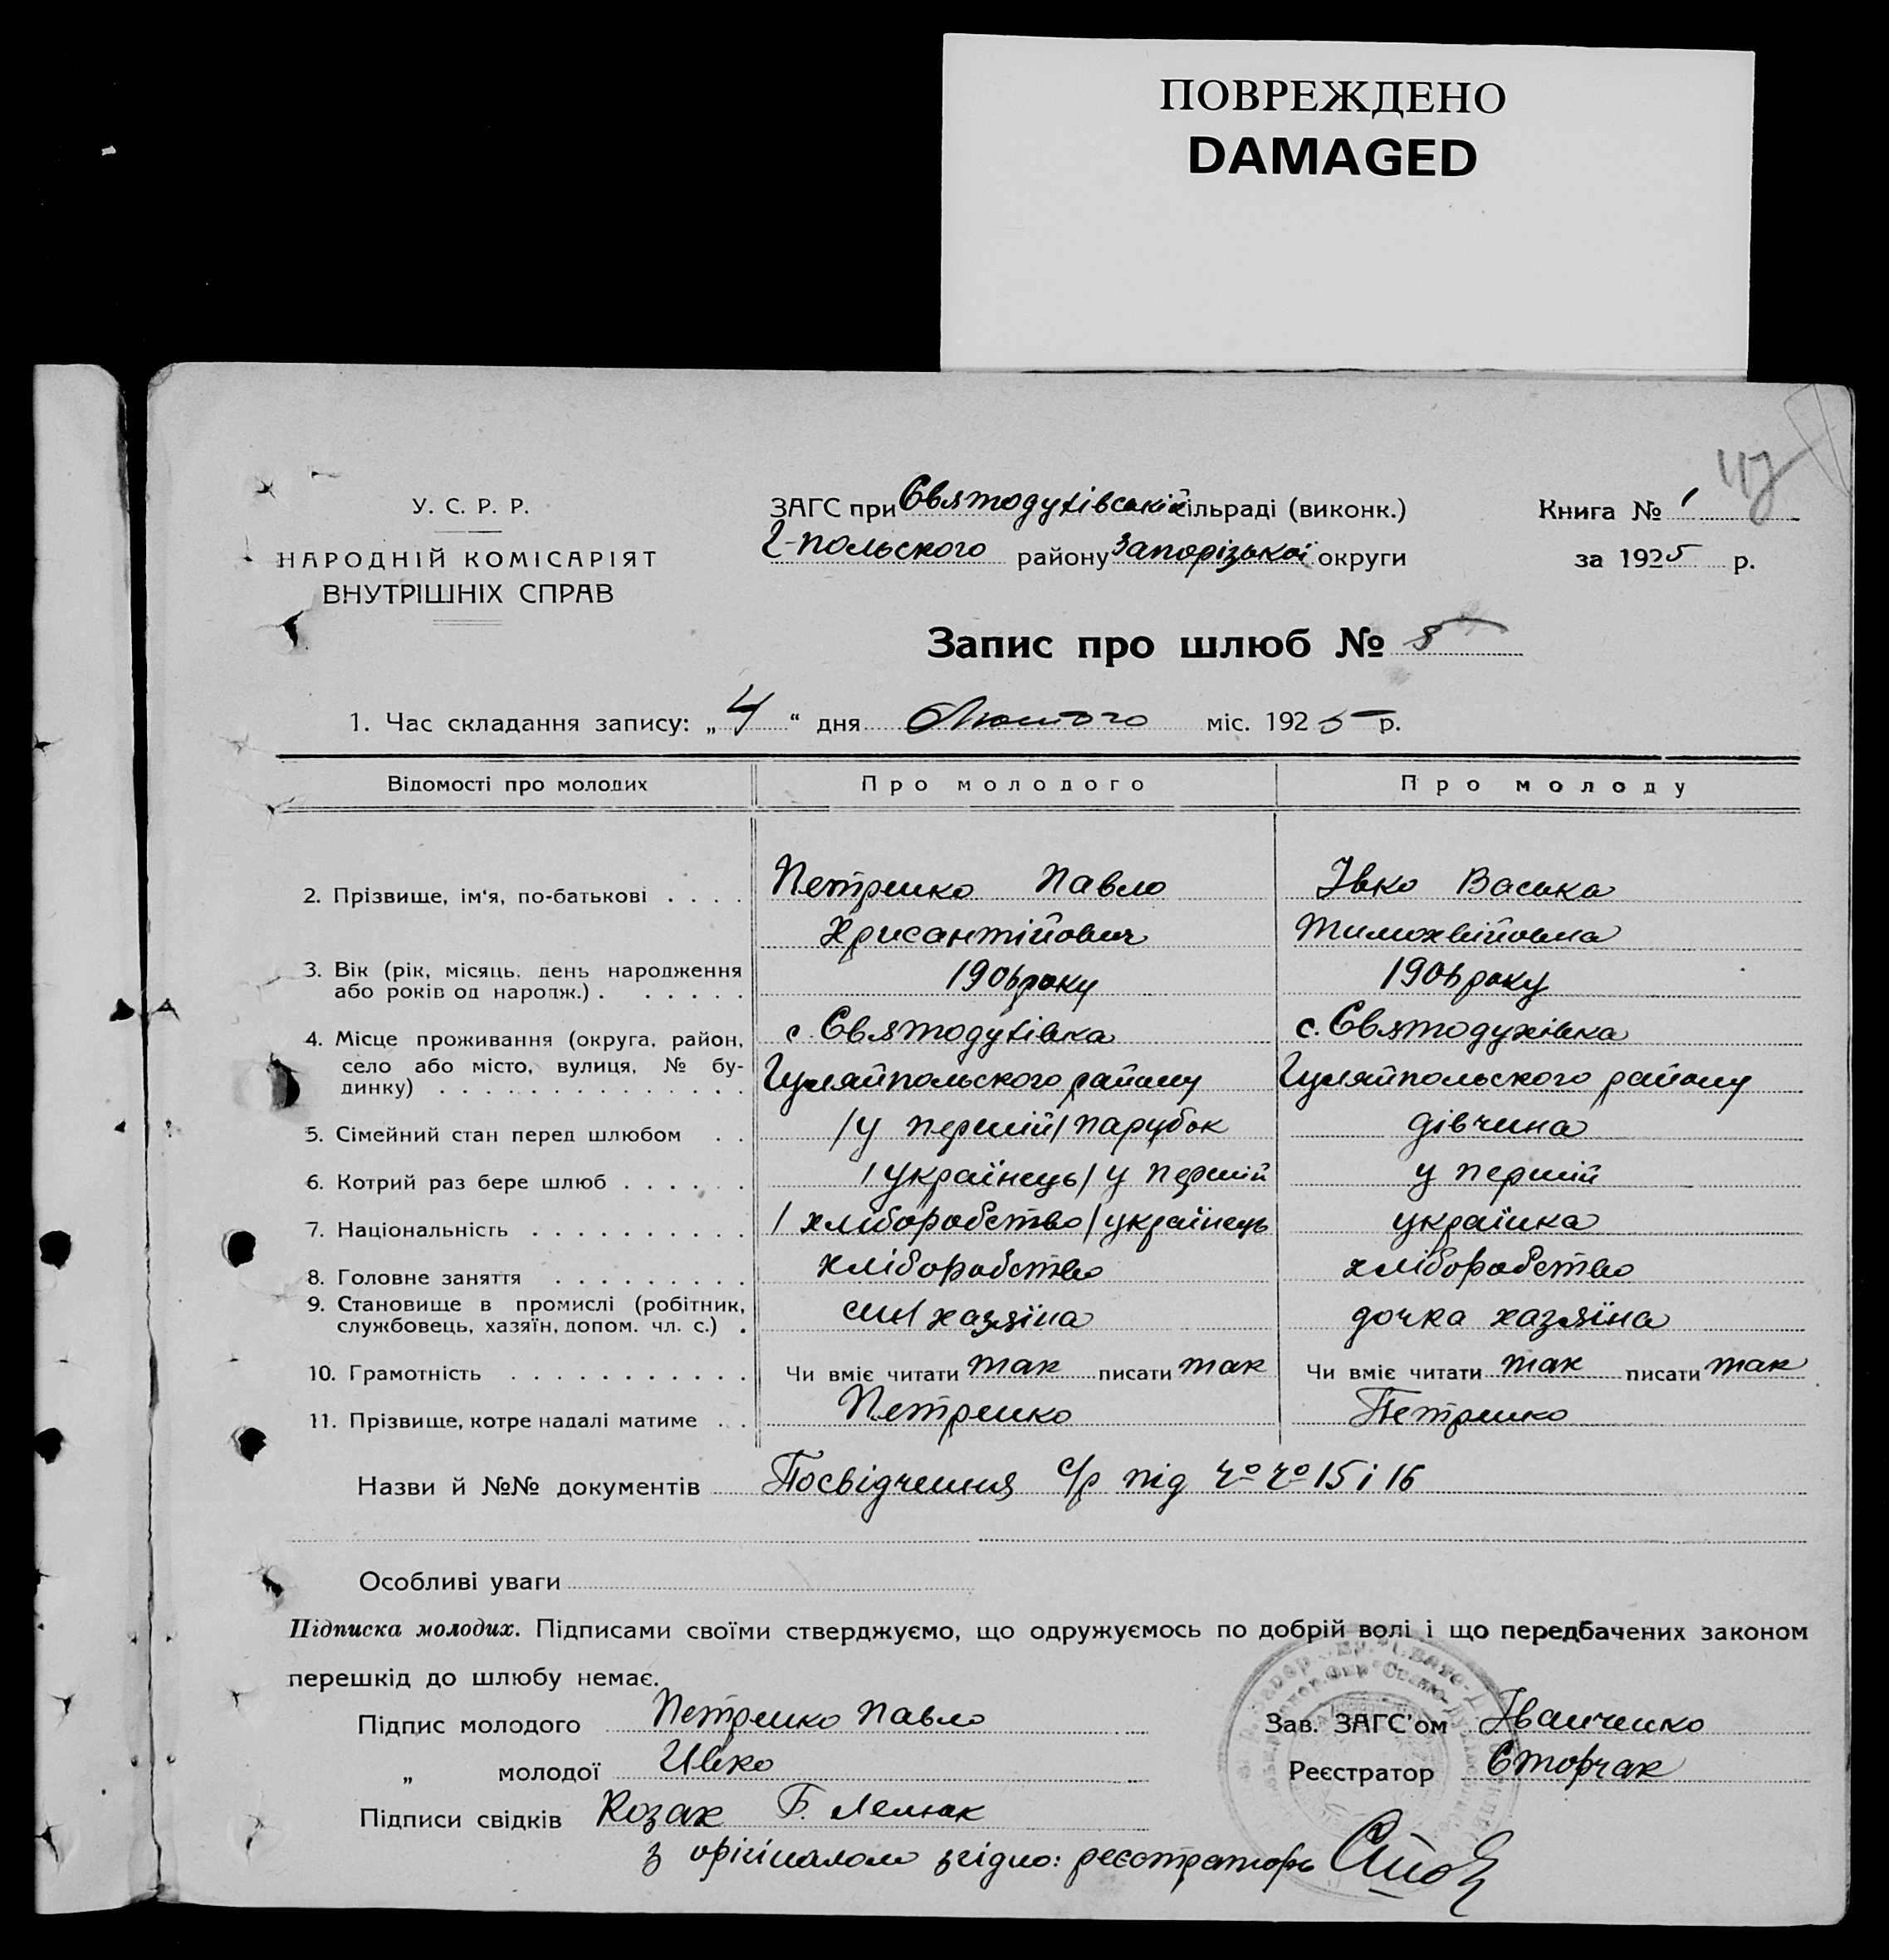 ПОВРЕЖДЕНО
DAMAGED
У. С. Р. Р.
НАРОДНІЙ КОМІСАРІЯТ
ВНУТРІШНІХ СПРАВ
ЗАГС при Святодухівській сільраді (виконк.)
Г-польского району Запорізької округи
Книга № 1
за 1925 р.
Запис про шлюб № 5
1. Час складання запису: „ 4 “ дня Лютого міс. 1925 р.
Відомості про молодих Про молодого Про молоду
2. Прізвище, ім'я, по-батькові . . . . Петренко Павло Івко Васька
Хрисантійович Тимохвійовна
3. Вік (рік, місяць, день народження
або років од народж.) . . . . . . 1906 року 1906 року
4. Місце проживання (округа, район, с. Святодухівка с. Святодухівка
село або місто, вулиця, № бу-
динку) . . . . . . . . . . . . . . Гуляйпольского району Гуляйпольского району
5. Сімейний стан перед шлюбом . . /у перший/ парубок дівчина
6. Котрий раз бере шлюб . . . . . . /українець/ у перший у перший
7. Національність . . . . . . . . . . /хлібороб­ство/ українець украінка
8. Головне заняття . . . . . . . . . хліборобство хліборобство
9. Становище в промислі (робітник,
службовець, хазяїн, допом. чл. с.) . син хазяїна дочка хазяїна
10. Грамотність . . . . . . . . . . . Чи вміє читати так писати так Чи вміє читати так писати так
11. Прізвище, котре надалі матиме . . Петренко Петренко
Назви й №№ документів Посвідчення с/р під чо чо 15 і 16
Особливі уваги
Підписка молодих. Підписами своїми стверджуємо, що одружуємось по добрій волі і що передбачених законом
перешкід до шлюбу немає.
Підпис молодого Петренко Павло Зав. ЗАГС'ом Іванченко
„ молодої Ивко Реєстратор Сторчак
Підписи свідків Козак Г. Лемак
з орігіналом згідно: реєстраторь